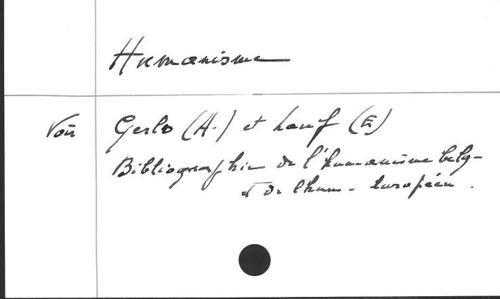 Humanisme
Voir Gerlo (A.) et Lauf (E)
Bibliographie de l'humanisme belg-
et de l'hum. européen.